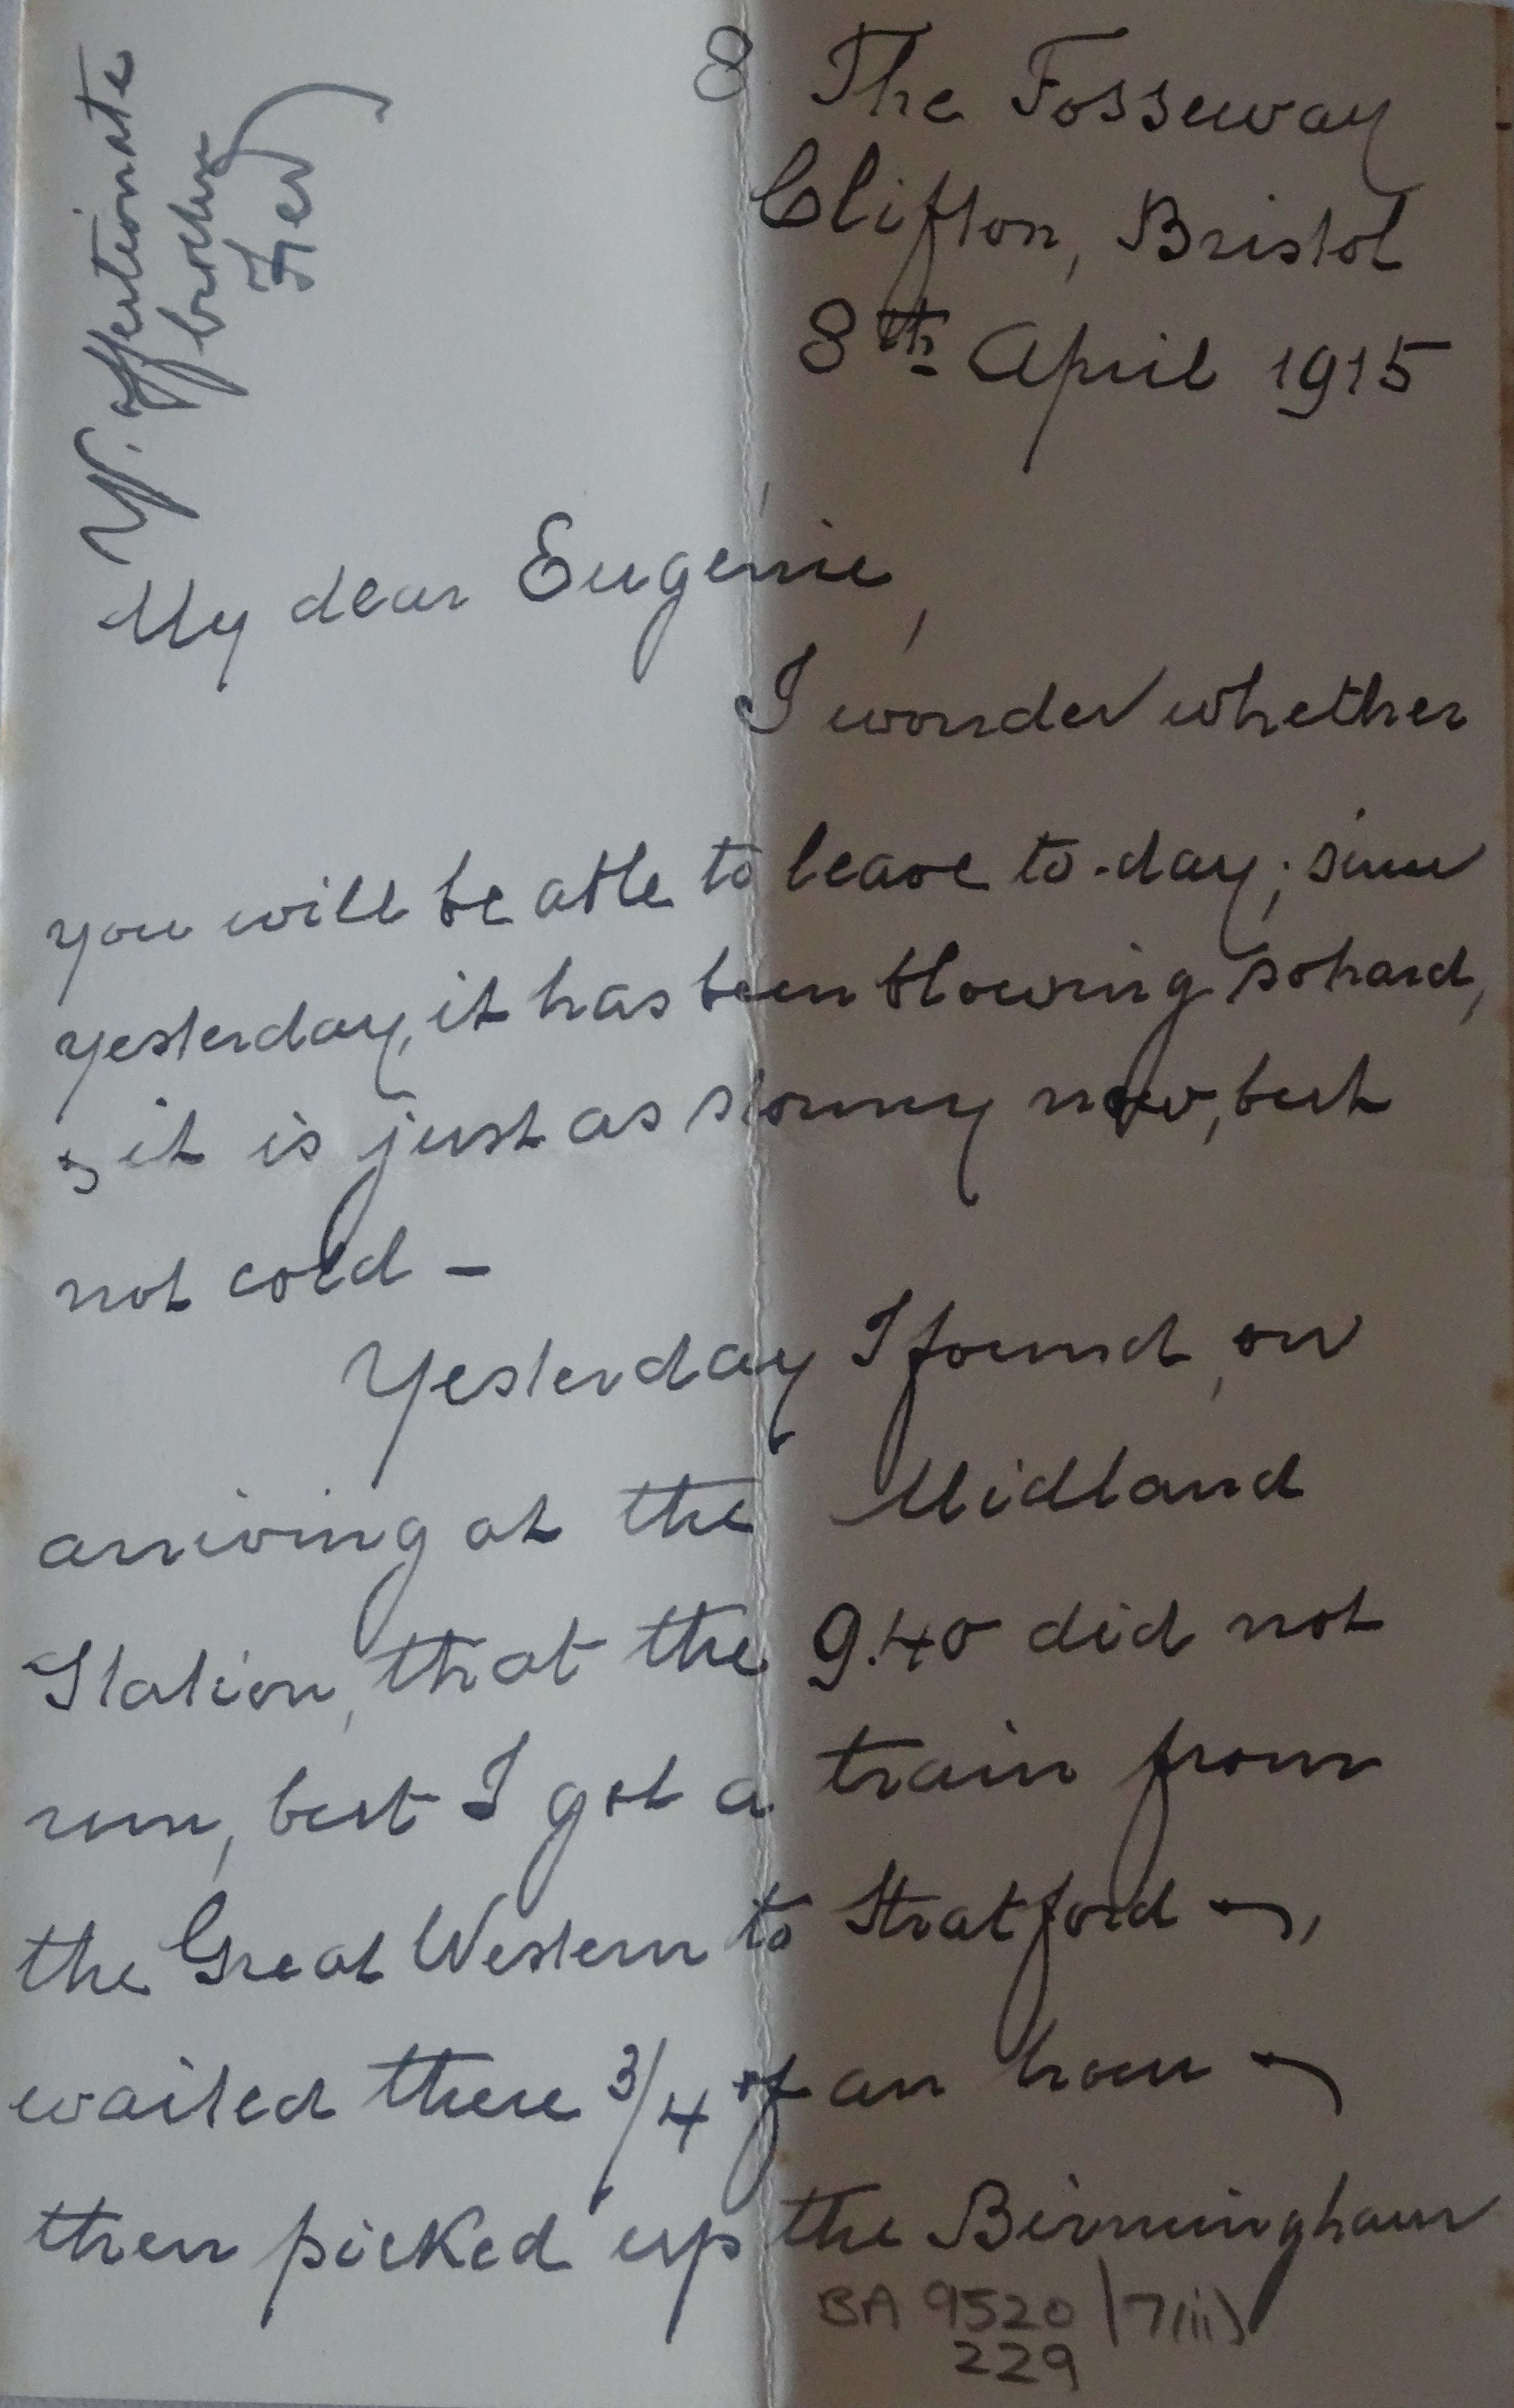 8 The Fosseway
Clifton, Bristol
8th April 1915
My dear Eugénie,
I wonder whether
you will be able to leave to-day; since
yesterday, it has been blowing so hard,
& it is just as stormy now, but
not cold —
Yesterday I found, on
arriving at the Midland
Station, that the 9.40 did not
run, but I got a train from
the Great Western to Stratford &,
waited there 3/4 of an hour &
then picked up the Birmingham
Yr. affectionate
brother
BA 9520 / 7(ii)
229